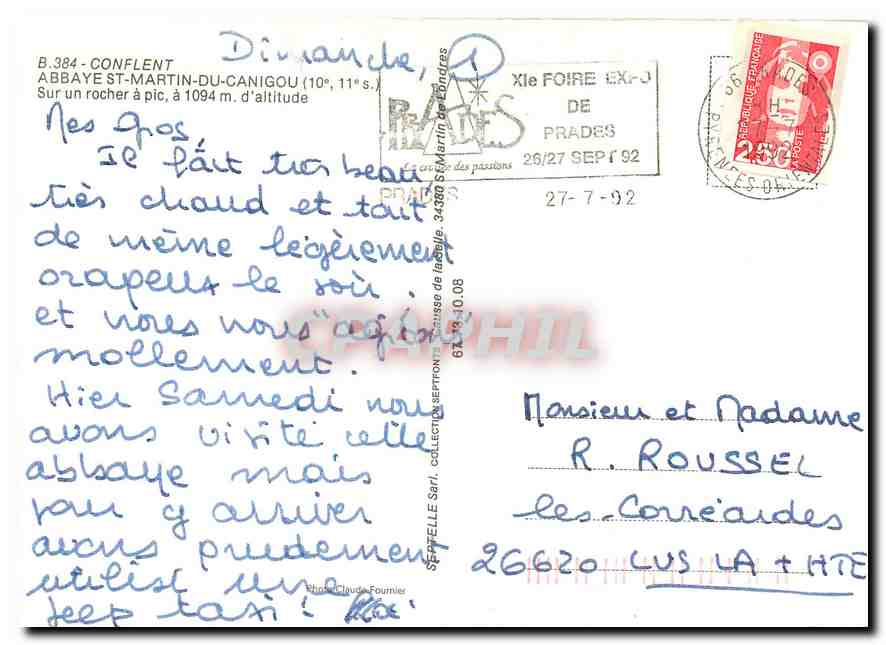 Dimanche, 1
B.384 - CONFLENT
ABBAYE ST-MARTIN-DU-CANIGOU (10e, 11e s.)
Sur un rocher à pic, à 1094 m. d'altitude
Mes Gros,
Il fait très beau
très chaud et tout
de même légèrement
orageux le soir.
et nous nous "agitons"
mollement.
Hier Samedi nous
avons visité cette
abbaye mais
pour y arriver
avons prudemment
utilisé une
jeep taxi!
Photo Claude Fournier
SEPTELLE Sarl. COLLECTION SEPTFONTS 34380 St Martin de Londres
67.73.10.08
PRADES
XIe FOIRE EXPO
DE
PRADES
26/27 SEPT 92
Le centre des passions
PRADES
27-7-92
66 PRADES
PYRENEES-ORIENTALES
REPUBLIQUE FRANÇAISE
2,50
LA POSTE
CPAPHIL
Monsieur et Madame
R. ROUSSEL
Les Corréardes
26620 LUS LA + HTE